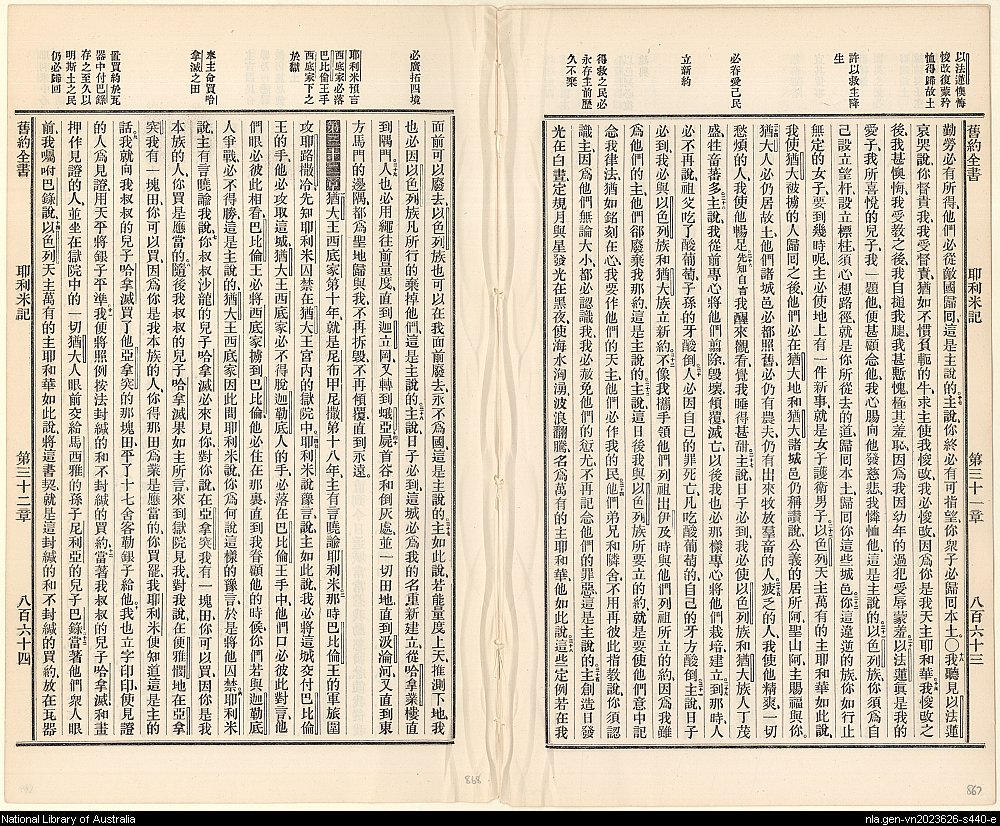 以法蓮懊悔
悛改復蒙矜
恤得歸故土
許以後生降
生
必眷愛己民
立新約
得救之民必
永存主前歷
久不棄
舊約全書 耶利米記 第三十一章 八百六十三
勤勞必有所得他們必從敵國歸回這是主說的主說你終必有可指望你衆子必歸回本土〇我聽見以法蓮
哀哭說你督責我我受督責猶如不慣負軛的牛求主使我悛改我必悛改因爲你是我天主耶和華我悛改之
後我甚懊悔我受教之後我自搥我腿我甚慚愧極其羞恥因爲我因幼年的過犯受辱蒙羞以法蓮眞是我的
愛子我所喜悅的兒子我一題他便甚顧念他我心腸向他發慈悲我憐恤他這是主說的以色列族你須爲自
己設立望杆設立標柱須心想路徑就是你所從去的道歸回本土歸回你這些城邑你這違逆的族你如行止
無定的女子要到幾時呢主必使地上有一件新事就是女子護衛男子以色列天主萬有的主耶和華如此說
我使猶大被擄的人歸回之後他們必在猶大地和猶大諸城邑仍稱讚說公義的居所阿聖山阿主賜福與你
猶大人必仍居故土他們諸城邑必都照舊必仍有農夫仍有出來牧放羣畜的人疲乏的人我使他精爽一切
愁煩的人我使他暢足先知自言我醒來觀看覺我睡得甚甜主說日子必到我必使以色列族和猶大族人丁茂
盛牲畜蕃多主說我從前專心將他們翦除毀壞傾覆滅亡以後我也必那樣專心將他們栽培建立到那時人
必不再說祖父吃了酸葡萄子孫的牙酸倒人必因自己的罪死亡凡吃酸葡萄的自己的牙方酸倒主說日子
必到我必與以色列族和猶大族立新約不像我攜手領他們列祖出伊及時與他們列祖所立的約因爲我雖
爲他們的主他們卻廢棄我那約這是主說的主說這日後我與以色列族所要立的約就是要使他們意中記
念我律法猶如銘刻在心我要作他們的天主他們必作我的民他們弟兄和隣舍不用再彼此指教說你須認
識主因爲他們無論大小都必認識我我必赦免他們的愆尤不再記念他們的罪惡這是主說的主創造日發
光在白晝定規月與星發光在黑夜使海水洶湧波浪翻騰名爲萬有的主耶和華他如此說這些定例若在我
必廣拓四境
耶利米預言
西底家必落
巴比倫王手
西底家下之
於獄
奉主命買哈
拿滅之田
置買約於瓦
器中付巴錄
存之至久以
明斯土之民
仍必歸回
面前可以廢去以色列族也可以在我面前廢去永不爲國這是主說的主如此說若能量度上天推測下地我
也必因以色列族凡所行的棄掉他們這是主說的主說日子必到這城必爲我的名重新建立從哈拿業樓直
到隅門人也必用繩往前量度直到迦立岡叉轉到蛾亞屍首谷和倒灰處並一切田地直到汲淪河又直到東
方馬門的邊隅都爲聖地歸與我不再拆毀不再傾覆直到永遠
第三十二章 猶大王西底家第十年就是尼布甲尼撒第十八年主有言曉諭耶利米那時巴比倫王的軍旅圍
攻耶路撒冷先知耶利米囚禁在猶大王宮內的獄院中耶利米說豫言說主如此說我必將這城交付巴比倫
王的手他必攻取這城猶大王西底家必不得脫迦勒底人的手必落在巴比倫王手中他們口必彼此對言他
們眼必彼此相看巴比倫王必將西底家擄到巴比倫他必住在那裏直到我眷顧他的時候你們若與迦勒底
人爭戰必不得勝這是主說的猶大王西底家因此問耶利米說你爲何說這樣的豫言於是將他囚禁耶利米
說主有言曉諭我說你叔叔沙龍的兒子哈拿滅必來見你對你說在亞拿突我有一塊田你可以買因你是我
本族的人你買是應當的隨後我叔叔的兒子哈拿滅果如主所言來到獄院見我對我說在便雅憫地在亞拿
突我有一塊田你可以買因爲你是我本族的人你得那田爲業是應當的你買罷我耶利米便知道這是主的
話我就向我叔叔的兒子哈拿滅買了他亞拿突的那塊田平了十七舍客勒銀子給他我也立字印印使見證
的人爲見證用天平將銀子平準我便將照例按法封緘的和不封緘的買約當著我叔叔的兒子哈拿滅和畫
押作見證的人並坐在獄院中的一切猶大人眼前交給馬西雅的孫子尼利亞的兒子巴錄當著他們衆人眼
前我囑咐巴錄說以色列天主萬有的主耶和華如此說將這書契就是這封緘的和不封緘的買約放在瓦器
舊約全書 耶利米記 第三十二章 八百六十四
868
867
National Library of Australia
nla.gen-vn2023626-s440-e